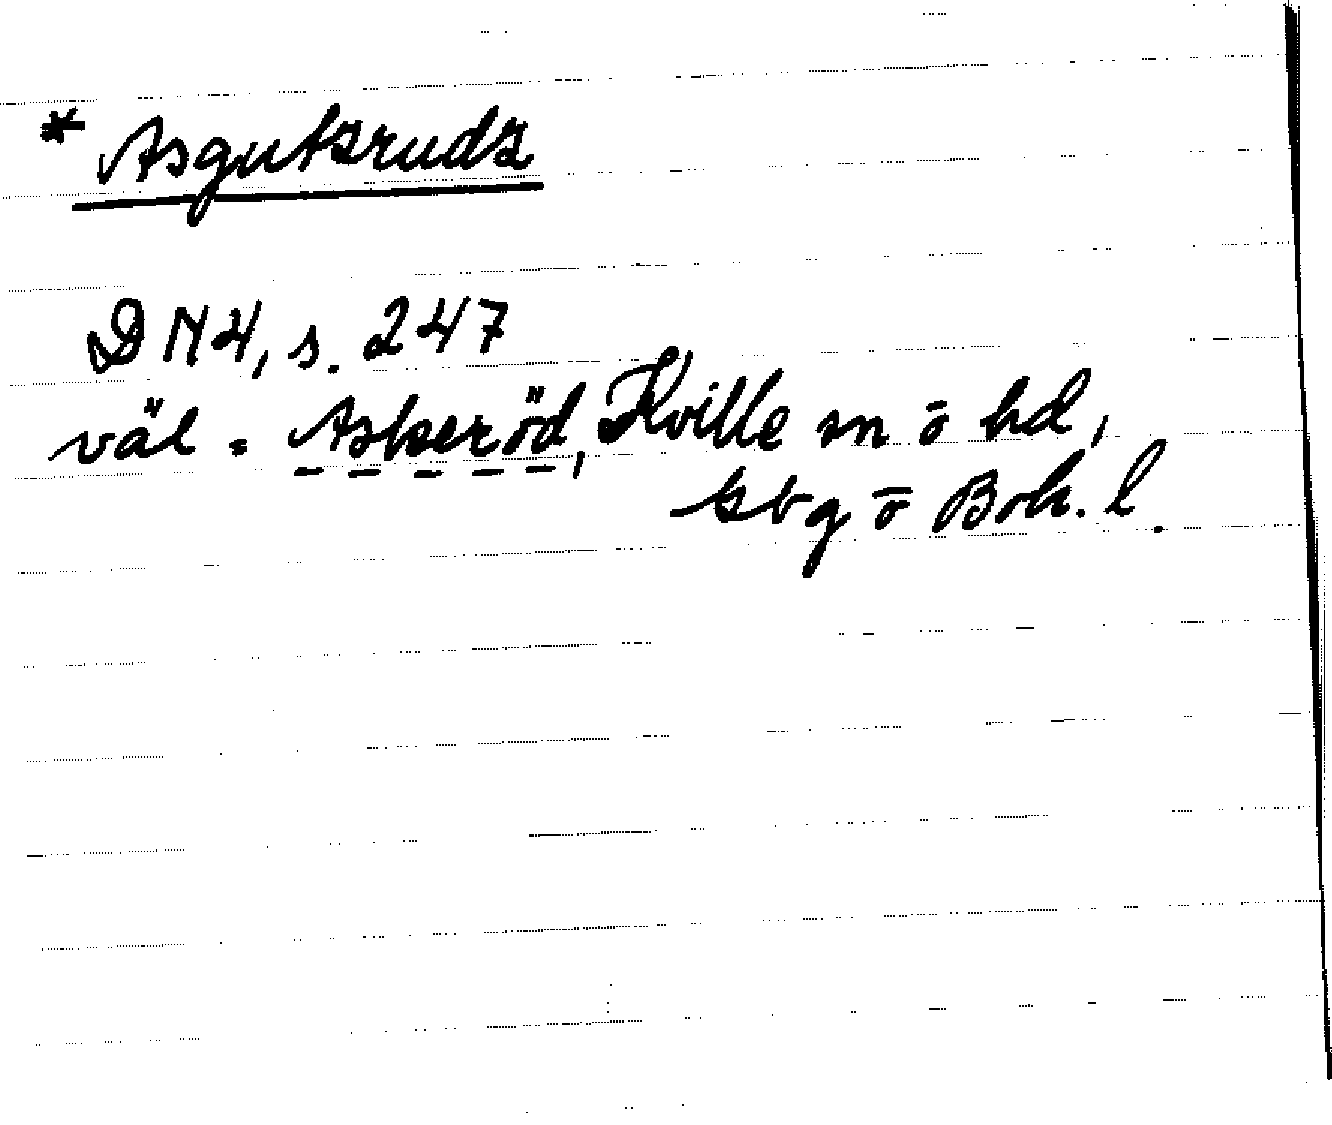 * Asgutzrudz
DN4, s. 247
väl. Askeröd, Kville sn ō hd,
Gbg ō Boh. l.